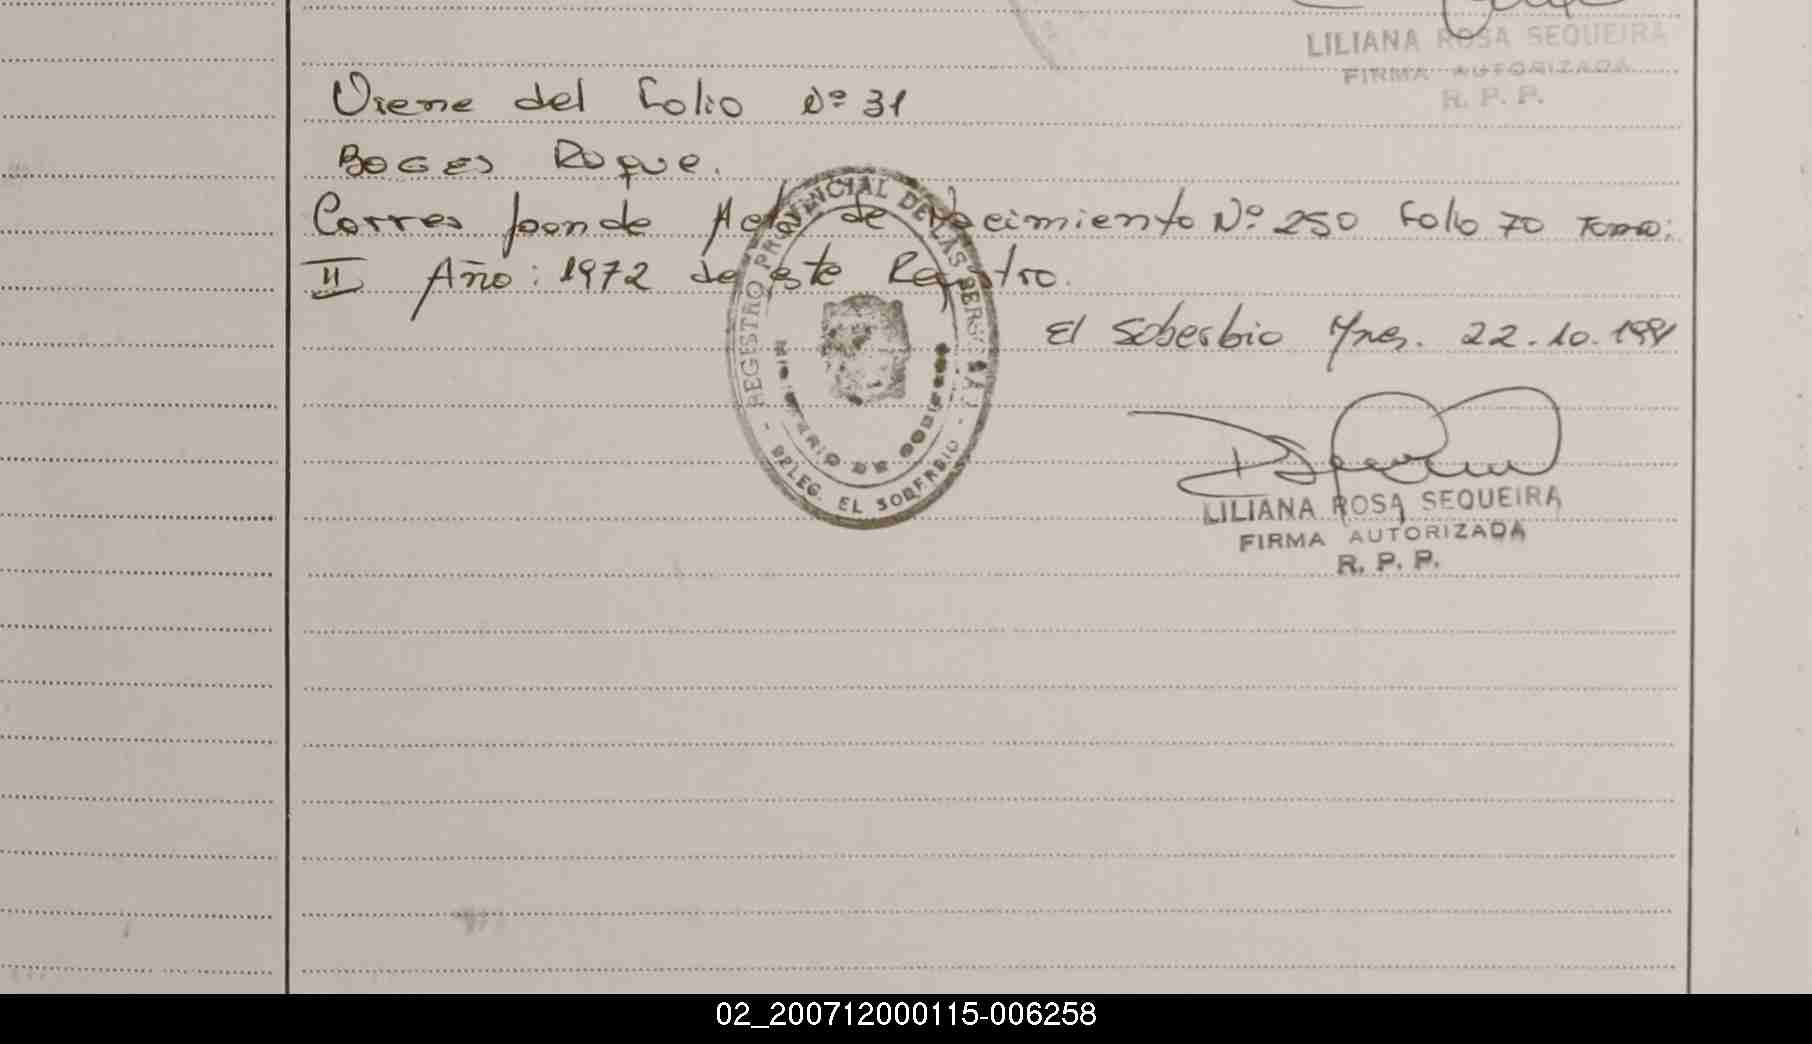 LILIANA ROSA SEQUEIRA
FIRMA AUTORIZADA
R. P. P.
Viene del Folio Nº 31
BOGES Roque.
Corresponde Acta de Nacimiento Nº 250 Folio 70 Tomo:
II Año: 1972 de este Registro.
El Soberbio Mnes. 22.10.1991
REGISTRO PROVINCIAL DE LAS PERSONAS
- DELEG. EL SOBERBIO -
LILIANA ROSA SEQUEIRA
FIRMA AUTORIZADA
R. P. P.
02_200712000115-006258